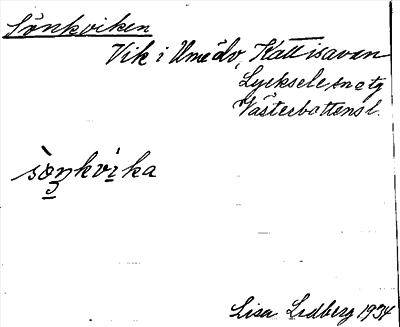 Sönkviken
Vik i Umeälv, Kattisavan
Lycksele sn o tg
Västerbottens l.
sö̀ŋkvi̇ka
Lisa Lidberg 1934